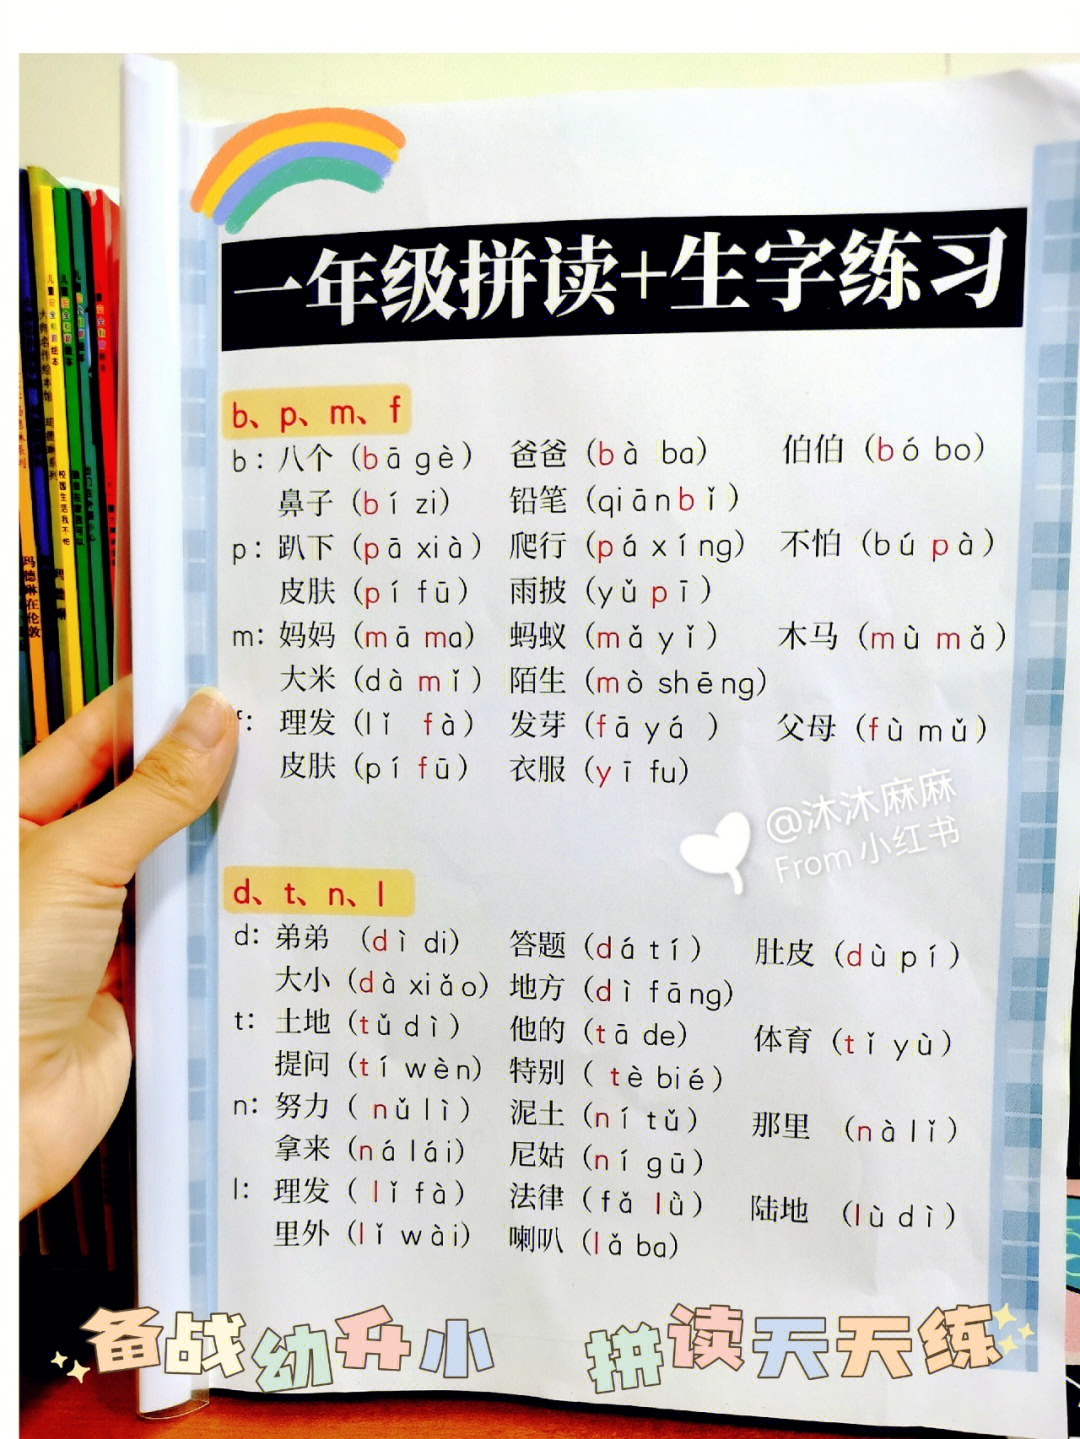 一年级拼读+生字练习
b、p、m、f
b：八个（bā gè） 爸爸（bà ba） 伯伯（bó bo）
鼻子（bí zi） 铅笔（qiānbǐ）
p：趴下（pā xià） 爬行（pá xíng） 不怕（bú pà）
皮肤（pí fū） 雨披（yǔ pī）
m：妈妈（mā ma） 蚂蚁（mǎ yǐ） 木马（mù mǎ）
大米（dà mǐ） 陌生（mò shēng）
f：理发（lǐ fà） 发芽（fā yá ） 父母（fù mǔ）
皮肤（pí fū） 衣服（yī fu）
@沐沐麻麻
From 小红书
d、t、n、l
d：弟弟 （dì di） 答题（dá tí） 肚皮（dù pí）
大小（dà xiǎo） 地方（dì fāng）
t：土地（tǔ dì） 他的（tā de） 体育（tǐ yù）
提问（tí wèn） 特别（ tè bié）
n：努力（ nǔ lì） 泥土（ní tǔ） 那里 （nà lǐ）
拿来（ná lái） 尼姑（ní gū）
l：理发（ lǐ fà） 法律（fǎ lǜ） 陆地 （lù dì）
里外（lǐ wài） 喇叭（lǎ ba）
备战幼升小 拼读天天练
玛德琳在伦敦